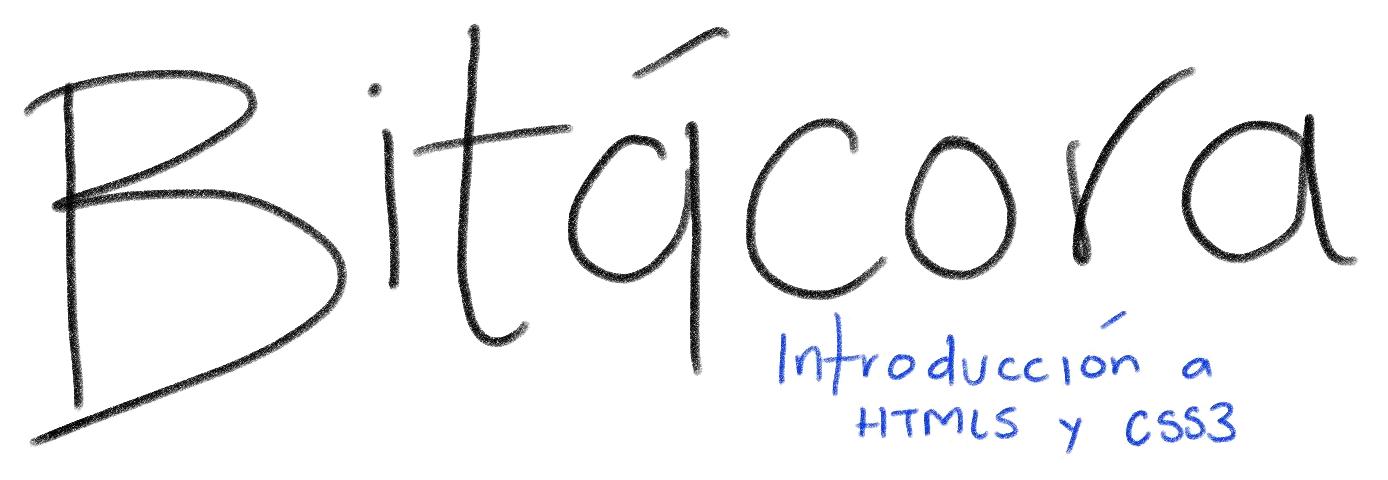 Bitácora
Introducción a
HTML5 y CSS3